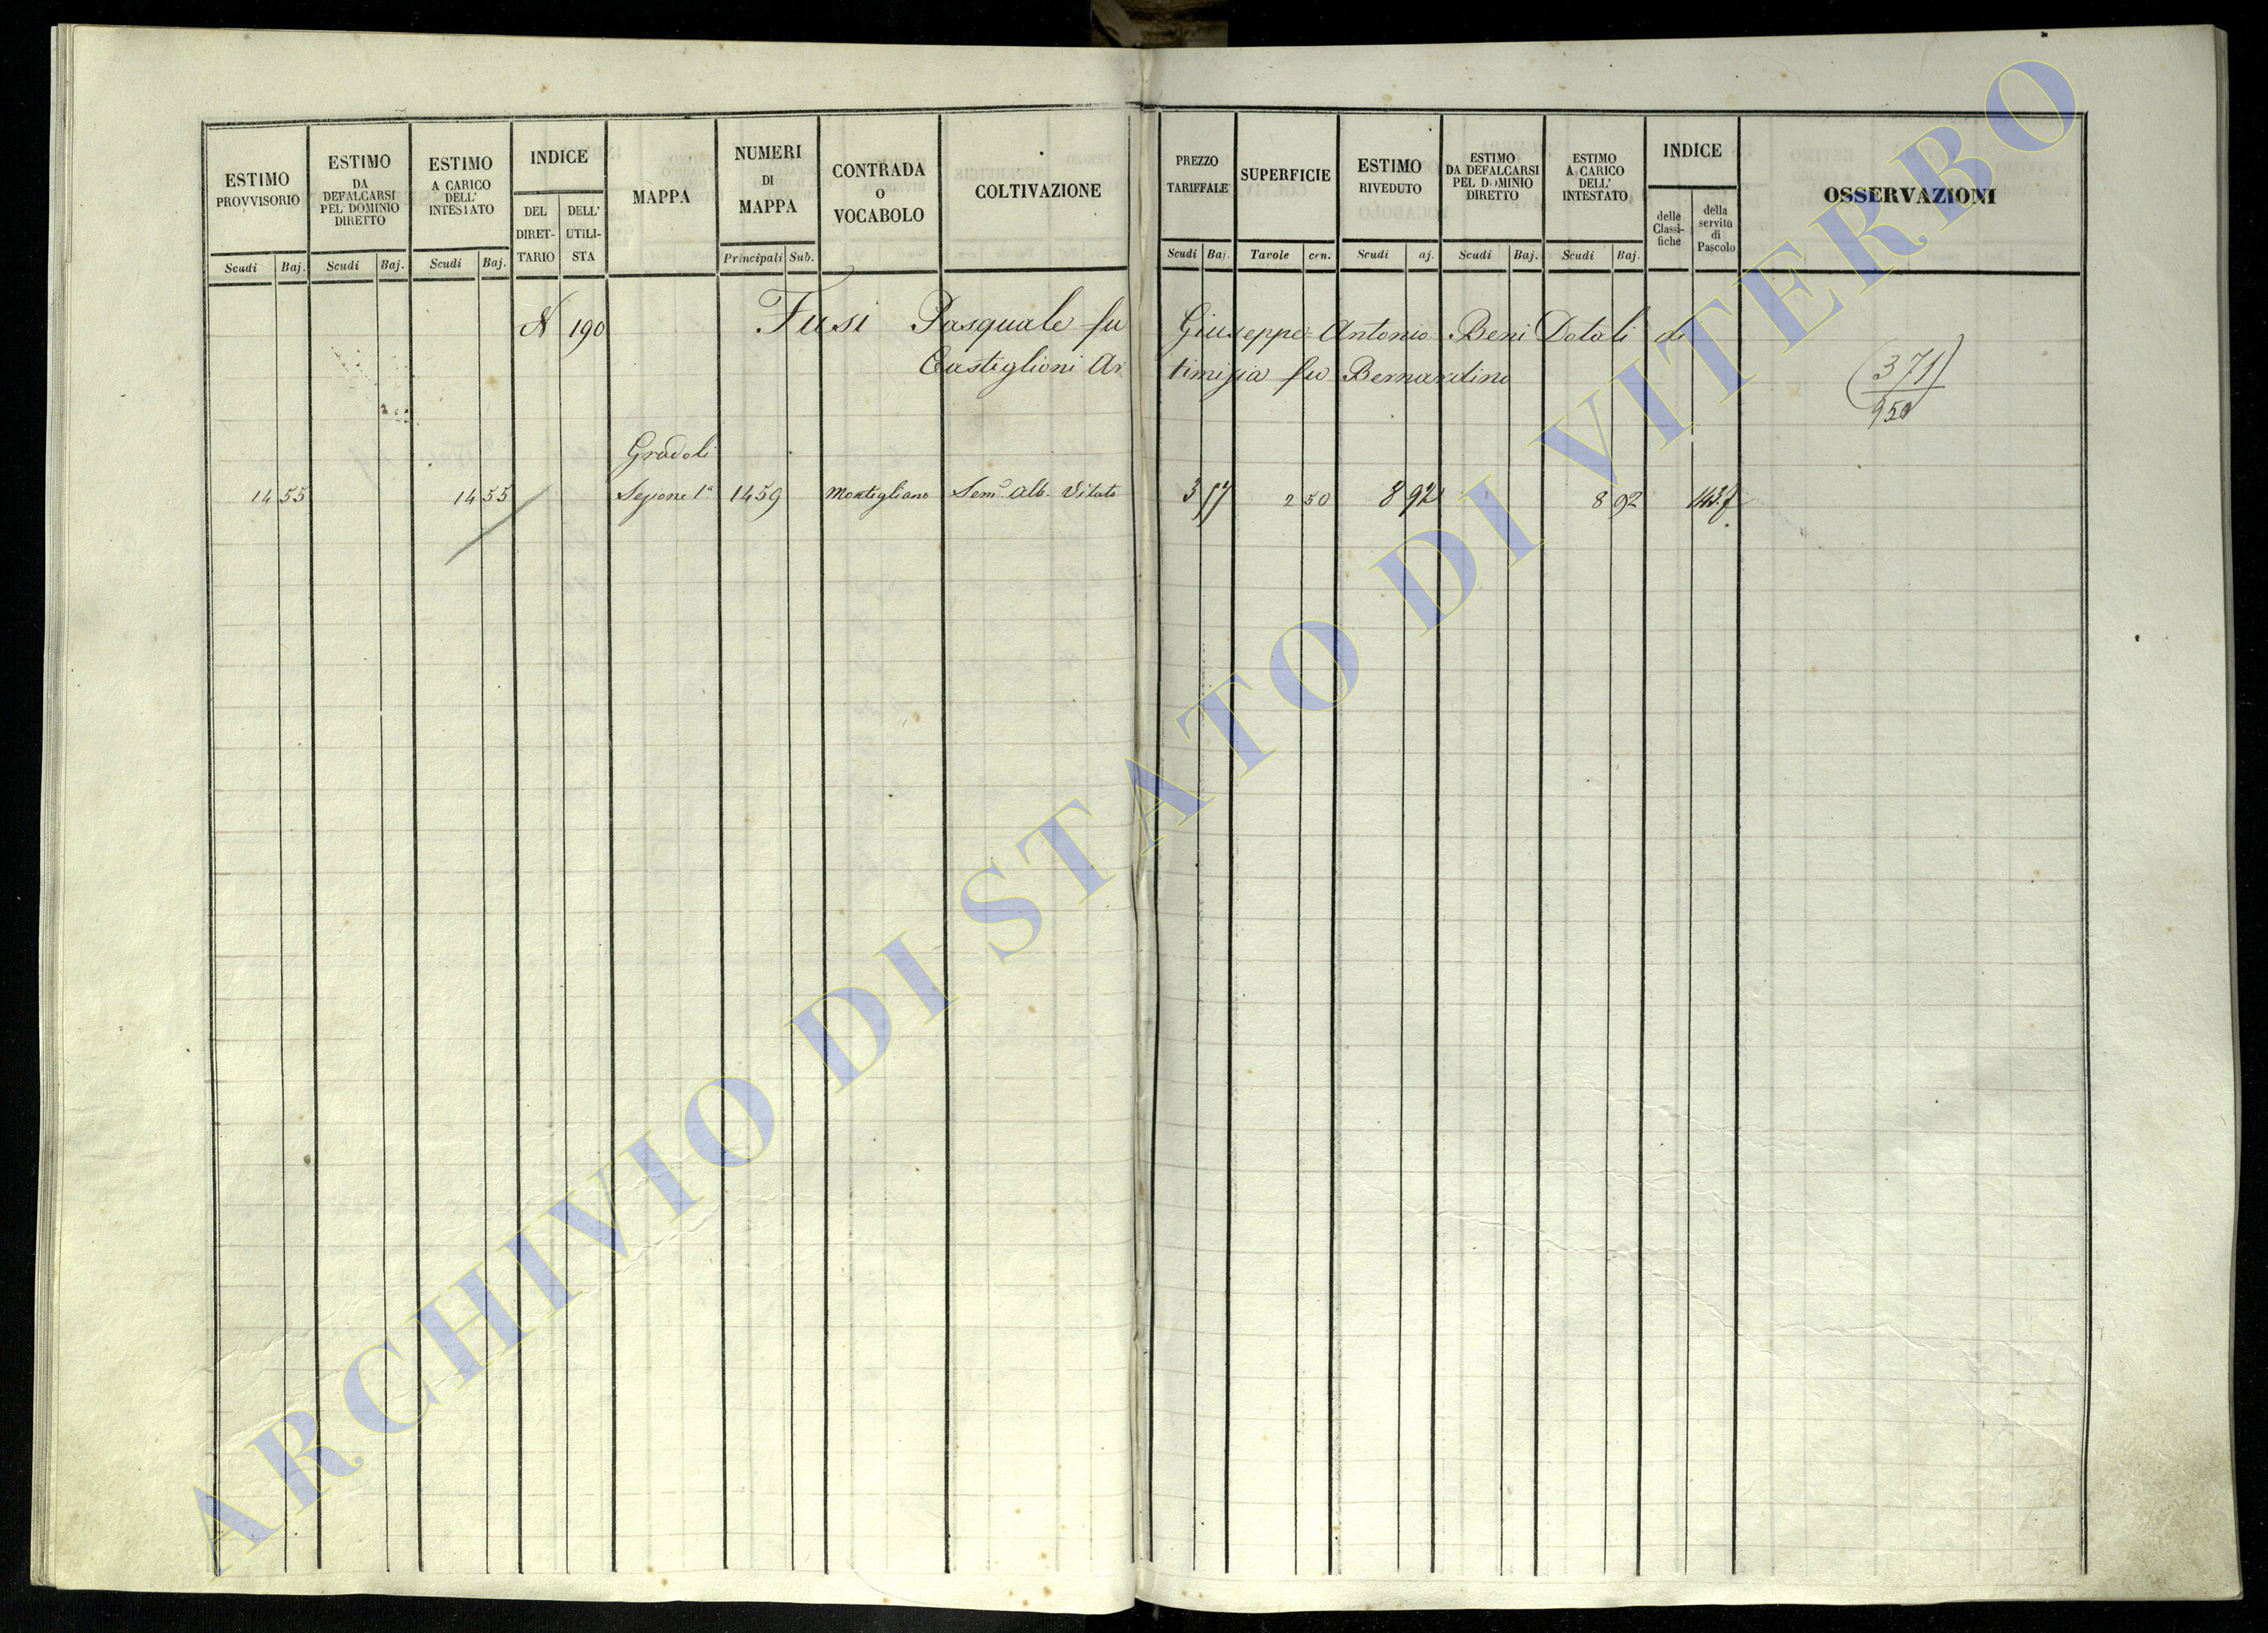 ESTIMO PROVVISORIO
ESTIMO DA DEFALCARSI PEL DOMINIO DIRETTO
ESTIMO A CARICO DELL' INTESTATO
INDICE
DEL DIRET- TARIO
DELL' UTILI- STA
MAPPA
NUMERI DI MAPPA
CONTRADA O VOCABOLO
COLTIVAZIONE
PREZZO TARIFFALE
SUPERFICIE
ESTIMO RIVEDUTO
ESTIMO DA DEFALCARSI PEL DOMINIO DIRETTO
ESTIMO A CARICO DELL' INTESTATO
INDICE
delle Classi- fiche
della servitù di Pascolo
OSSERVAZIONI
Scudi Baj. Scudi Baj. Scudi Baj. Principali Sub. Scudi Baj. Tavole cen. Scudi aj. Scudi Baj. Scudi Baj.
N 190 Fusi Pasquale fu Giuseppe Antonio Beni Dotali di
Castiglioni Artimizia fu Bernardino
(371)
950
Gradoli
14 55 14 55 Sezione 1a 1459 Montigliano Semo Alb. Vitato 3 57 2 50 8 92 8 92
ARCHIVIO DI STATO DI VITERBO